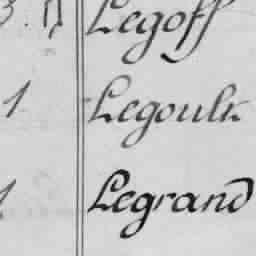 Legoff
1 Legoult
Legrand